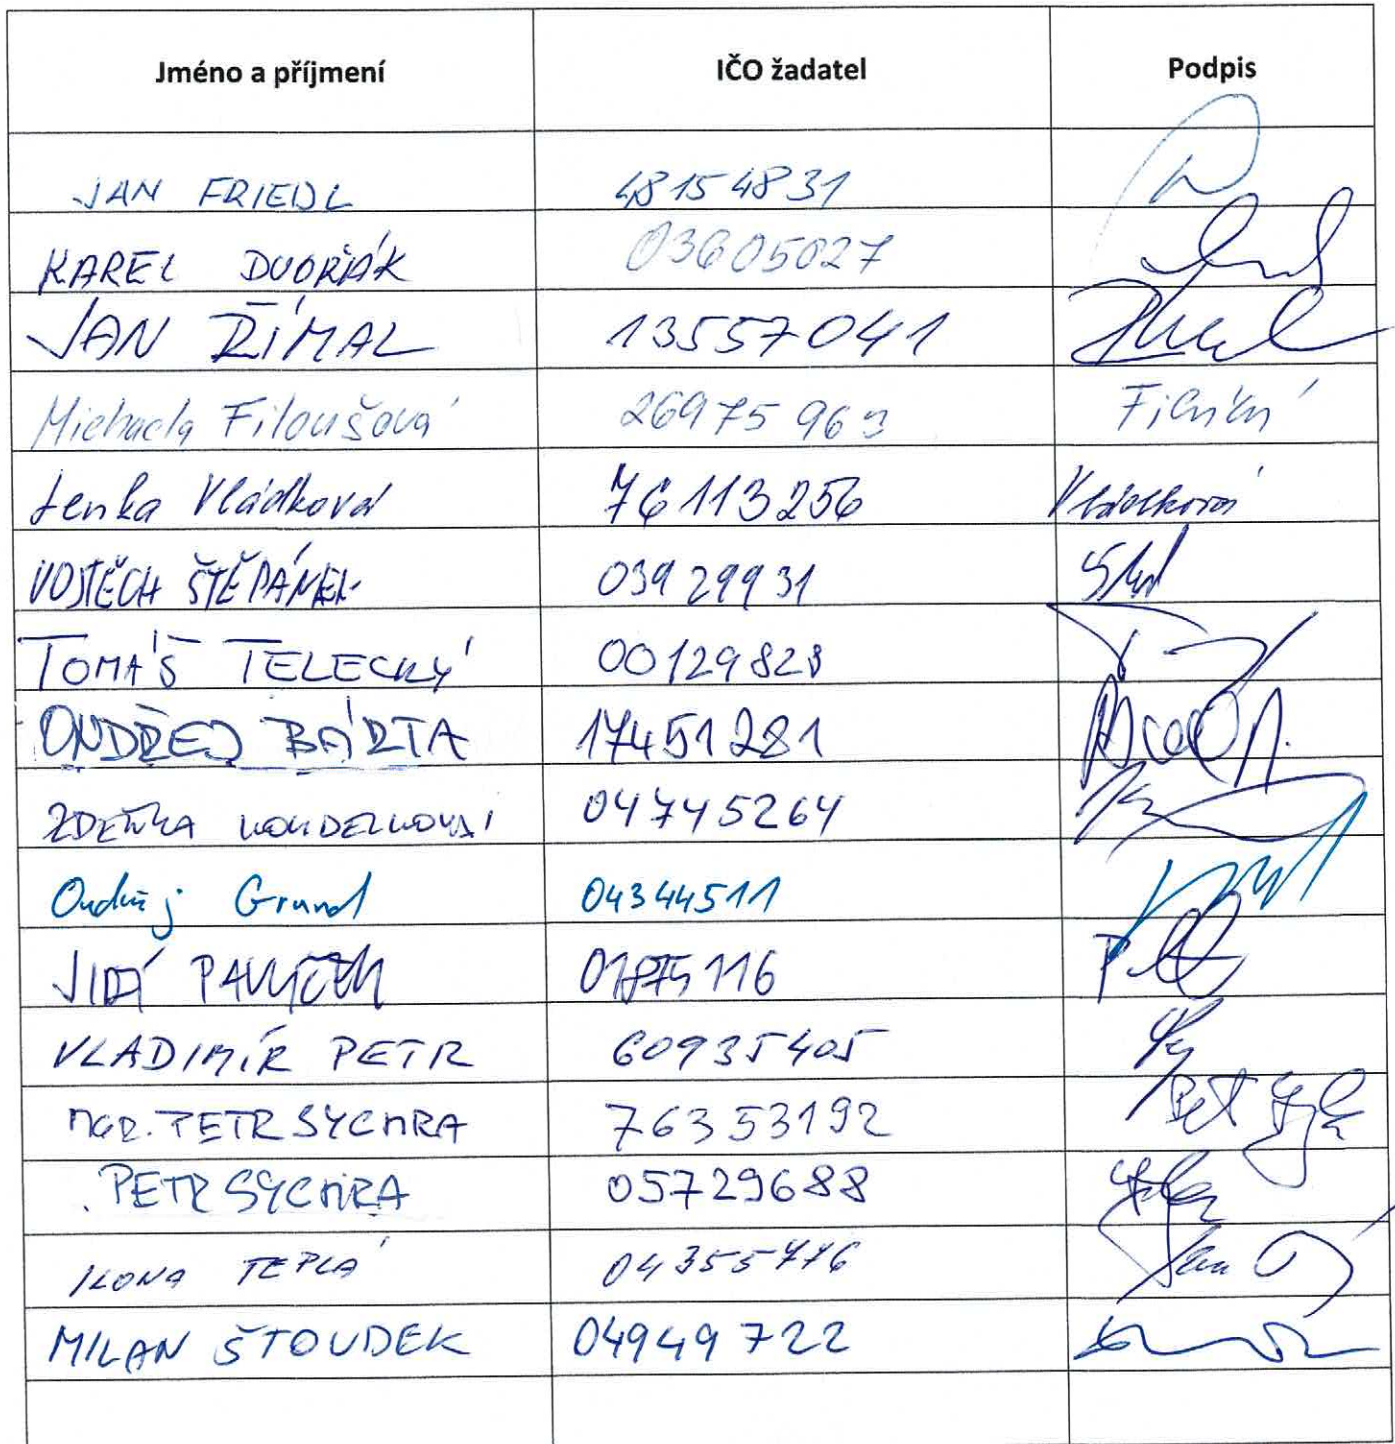 Jméno a příjmení IČO žadatel Podpis
JAN FRIEDL 48154831
KAREL DVOŘÁK 03605027
JAN ŘÍMAL 13557041
Michaela Filoušová 26975963
Lenka Vládková 76113256 Vládková
VOJTĚCH ŠTĚPÁNEK 03929931
TOMÁŠ TELECKÝ 00129828
ONDŘEJ BÁRTA 17451281
ZDEŇKA KOUDELKOVÁ 04745264
Ondřej Grund 04344511
JIŘÍ 01875116
VLADIMÍR PETR 60935405
MGR. PETR SYCHRA 76353192
PETR SYCHRA 05729688
ILONA TEPLÁ 04355776
MILAN ŠTOUDEK 04949722